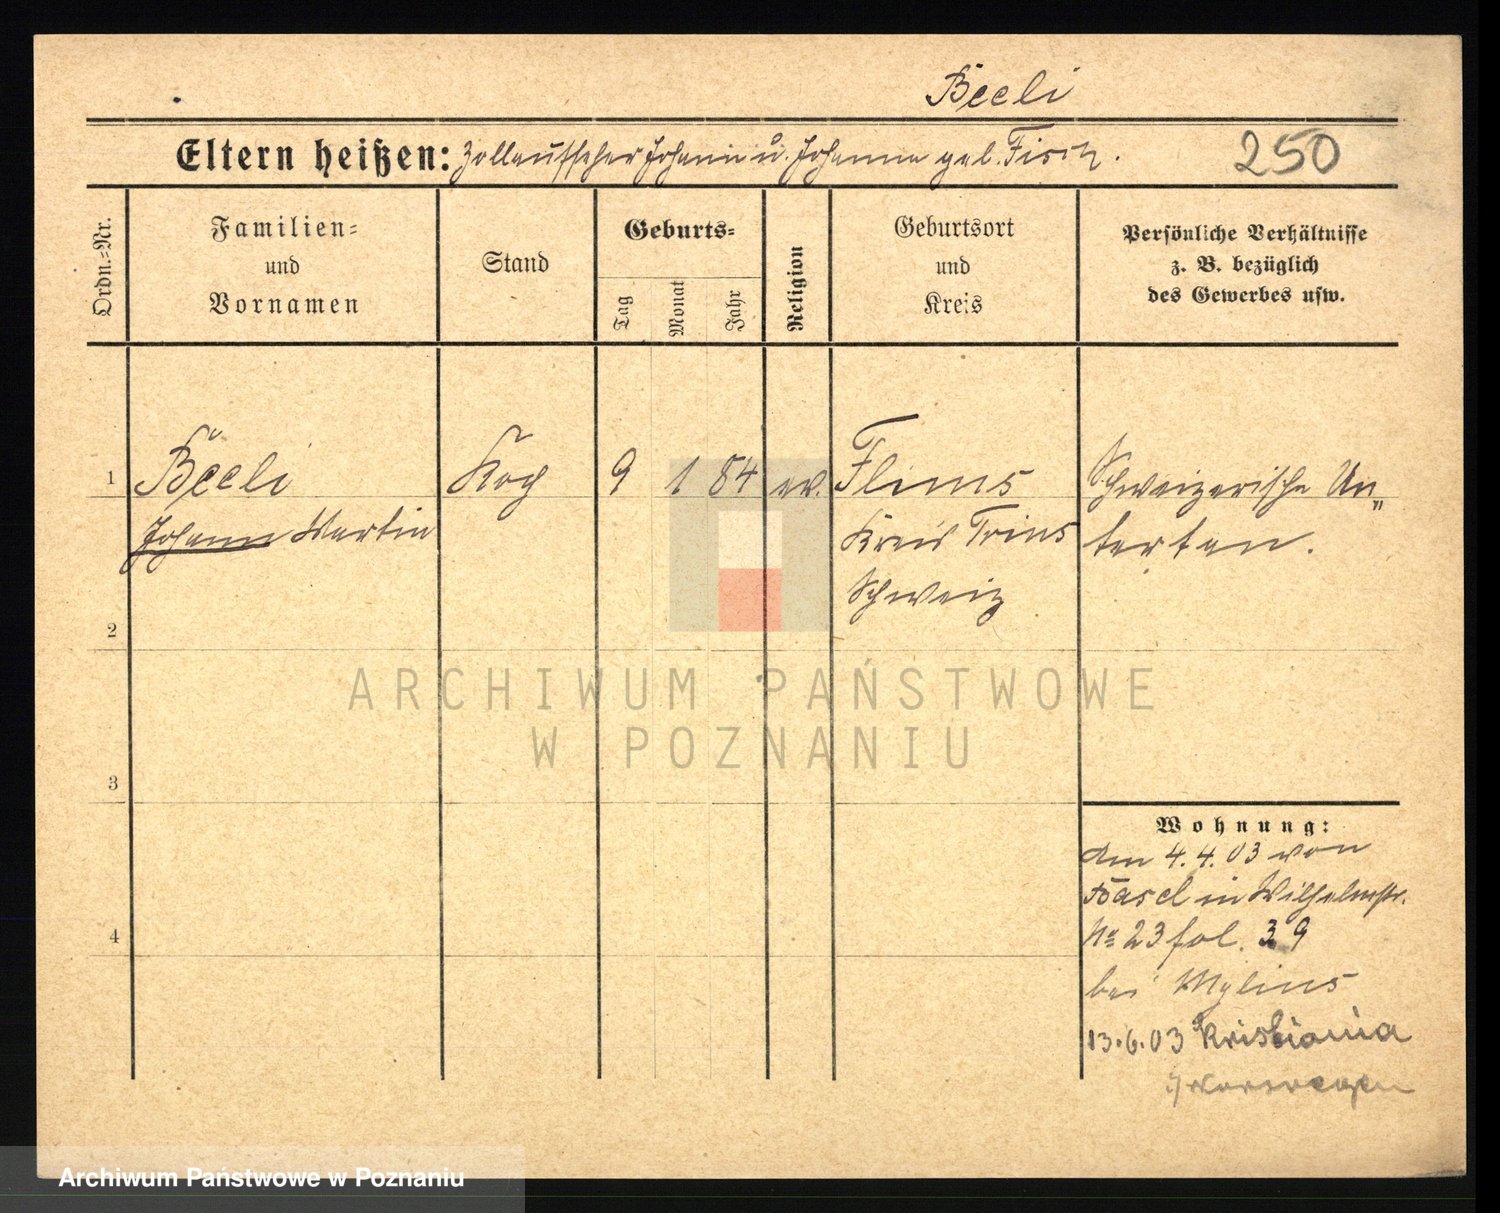 Beeli
Eltern heißen: Zollaufseher Johann u. Johanna geb. Fisch.
250
Ordn.=Nr.
Familien=
und
Vornamen
Stand
Geburts=
Tag
Monat
Jahr
Religion
Geburtsort
und
Kreis
Persönliche Verhältnisse
z. B. bezüglich
des Gewerbes usw.
1 Beeli Koch 9 1 84 ev. Flims Schweizerische Un„
Johann Martin Kreis Trins terten.
Schweiz
2
ARCHIWUM PAŃSTWOWE
W POZNANIU
3
Wohnung:
am 4.4.03 von
Basel in Wilhelmstr.
4 No 23 fol. 39
bei Mylius
13.6.03 Kristiania
Norwegen
Archiwum Państwowe w Poznaniu